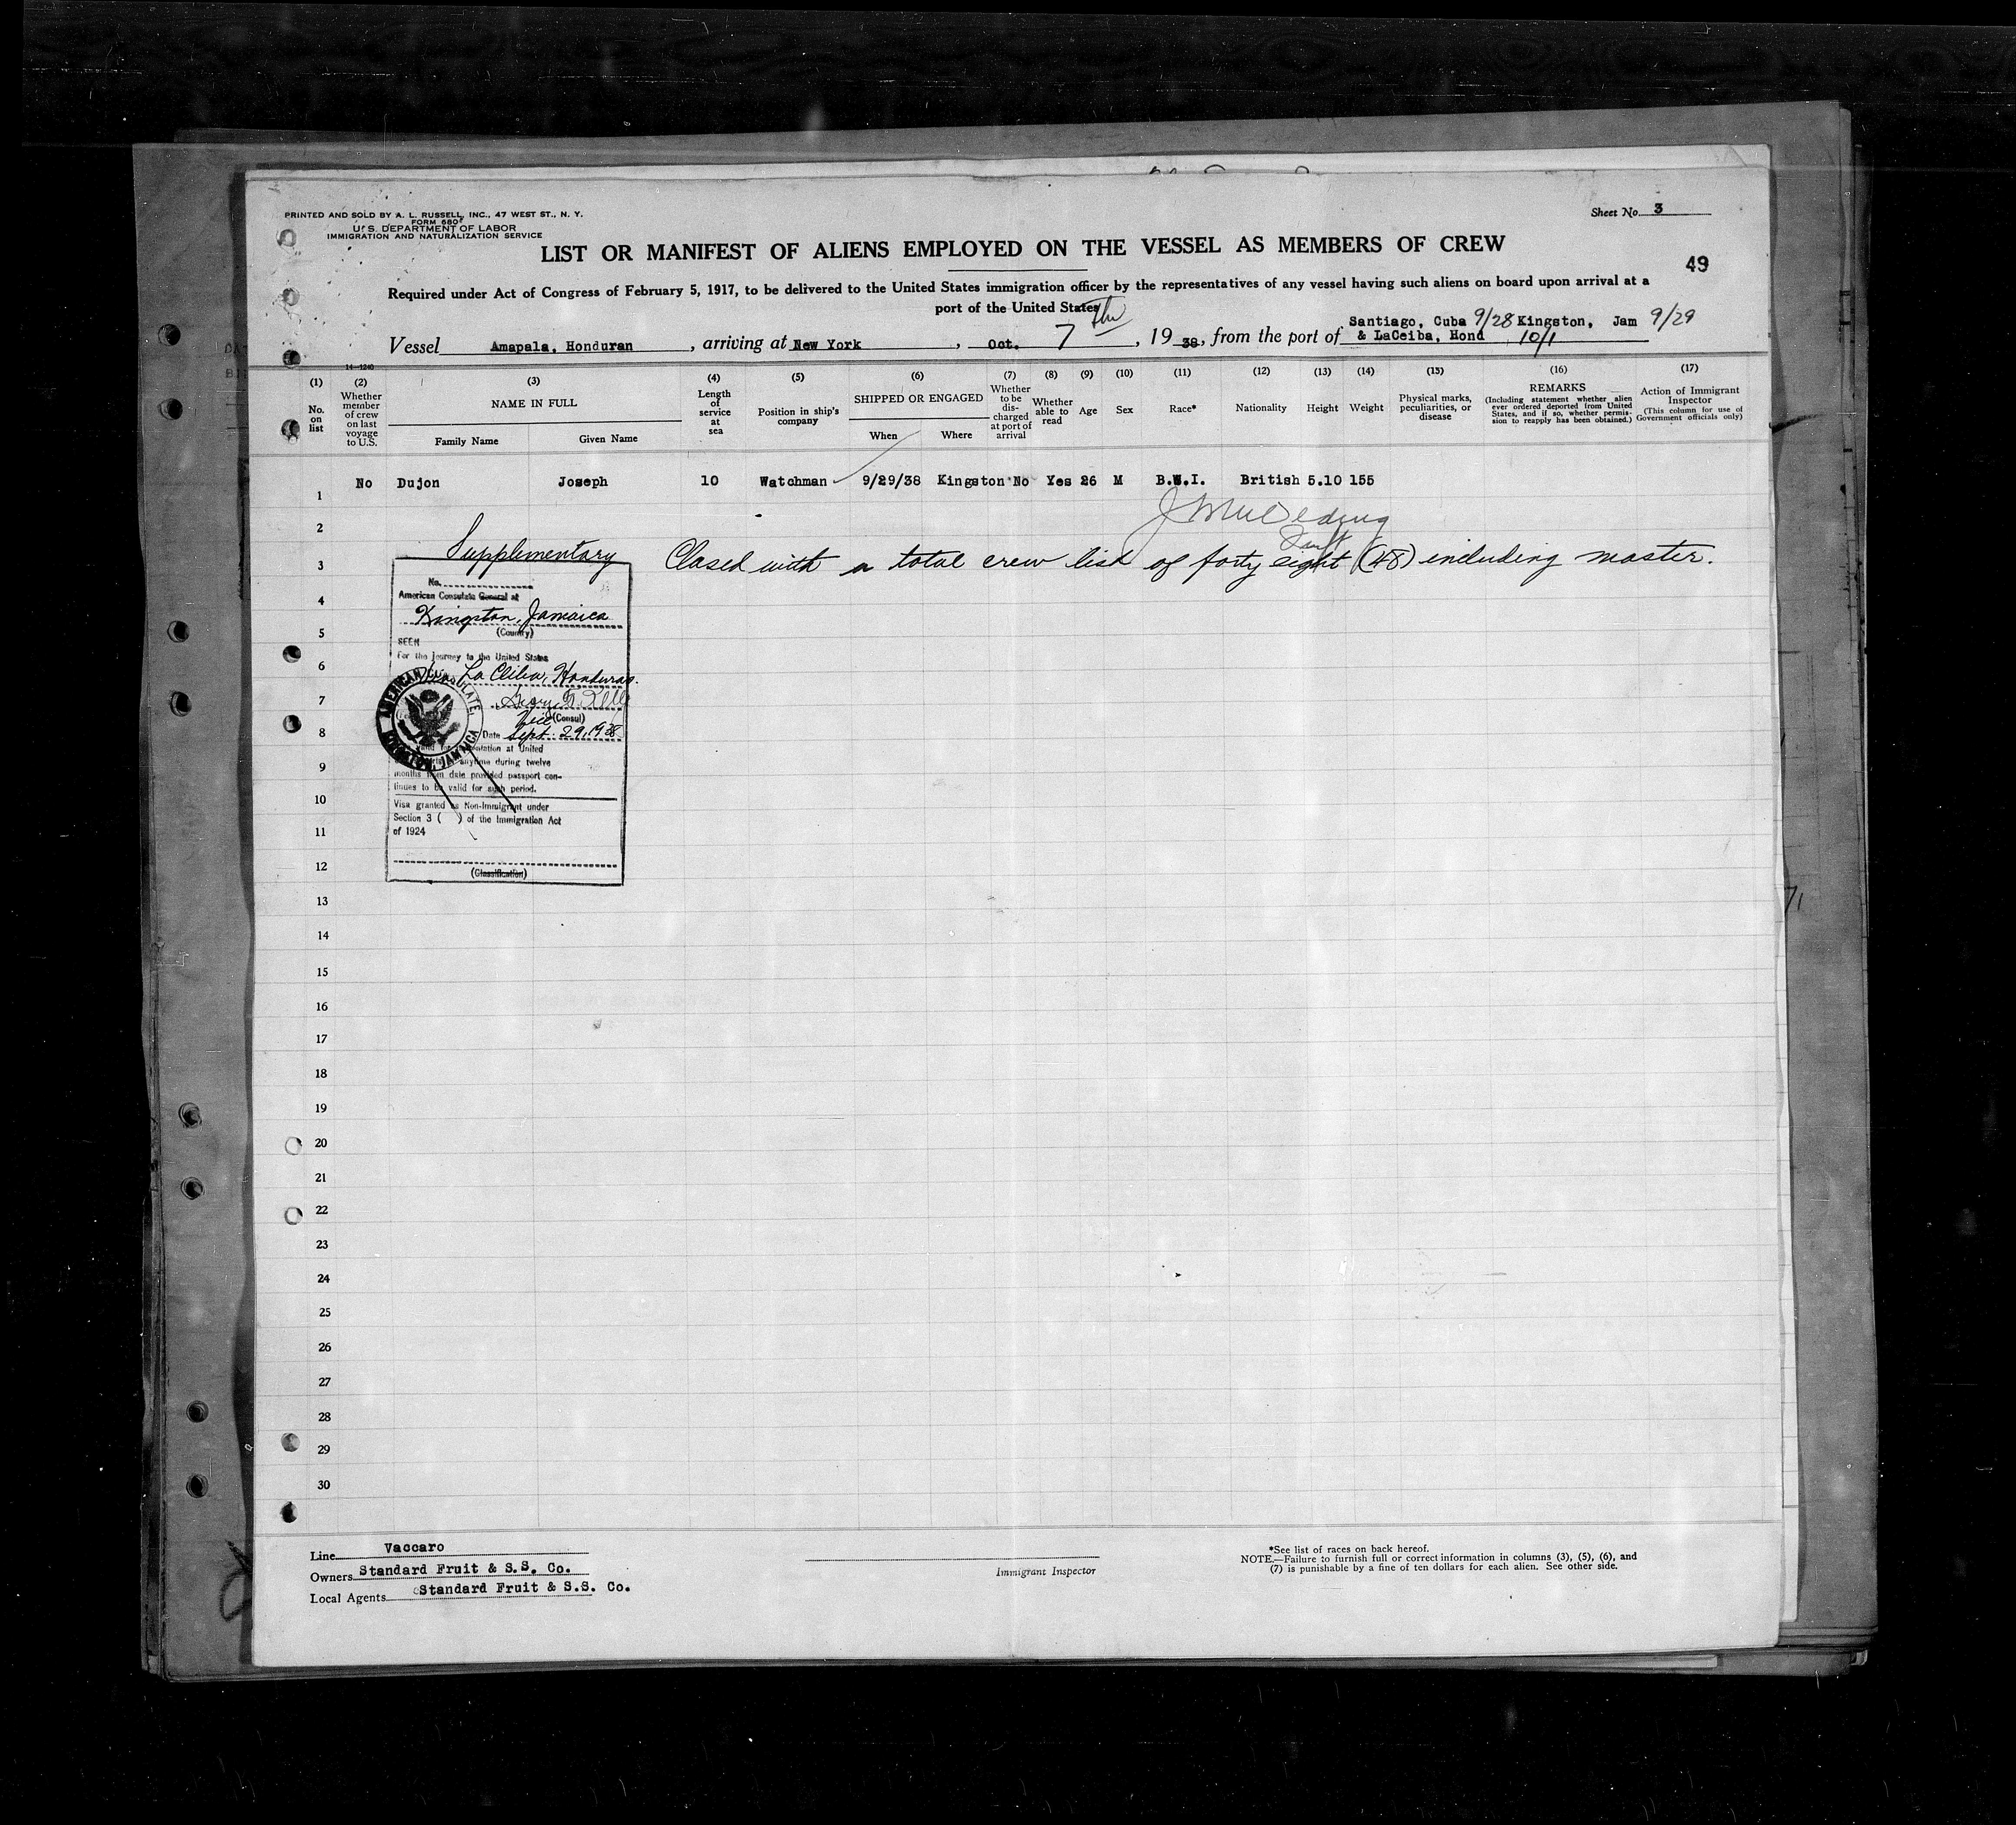 PRINTED AND SOLD BY A. L. RUSSELL, INC., 47 WEST ST., N. Y.
FORM 680
U. S. DEPARTMENT OF LABOR
IMMIGRATION AND NATURALIZATION SERVICE
Sheet No. 3
LIST OR MANIFEST OF ALIENS EMPLOYED ON THE VESSEL AS MEMBERS OF CREW
49
Required under Act of Congress of February 5, 1917, to be delivered to the United States immigration officer by the representatives of any vessel having such aliens on board upon arrival at a
port of the United States
Santiago, Cuba 9/28 Kingston, Jam 9/29
Vessel Amapala, Honduran, arriving at New York, Oct. 7th, 1938, from the port of & LaCeiba, Hond 10/1
14—1240
(1) No. on list
(2) Whether member of crew on last voyage to U.S.
(3) NAME IN FULL
Family Name Given Name
(4) Length of service at sea
(5) Position in ship's company
(6) SHIPPED OR ENGAGED
When Where
(7) Whether to be discharged at port of arrival
(8) Whether able to read
(9) Age
(10) Sex
(11) Race*
(12) Nationality
(13) Height
(14) Weight
(15) Physical marks, peculiarities, or disease
(16) REMARKS
(Including statement whether alien ever ordered deported from United States, and if so, whether permission to reapply has been obtained.)
(17) Action of Immigrant Inspector
(This column for use of Government officials only)
1 No Dujon Joseph 10 Watchman 9/29/38 Kingston No Yes 26 M B.W.I. British 5.10 155
2
3 Supplementary Closed with a total crew list of forty eight (48) including master.
No.
American Consulate General at
4
Kingston, Jamaica
5 (Country)
SEEN
For the journey to the United States
6 La Ceiba, Honduras.
7
Vice (Consul)
8 Date Sept. 29, 1938
AMERICAN CONSULATE, KINGSTON, JAMAICA
presentation at United
9 anytime during twelve
months from date provided passport con-
tinues to be valid for such period.
10 Visa granted as Non-Immigrant under
Section 3 ( ) of the Immigration Act
11 of 1924
12 (Classification)
13
14
15
16
17
18
19
20
21
22
23
24
25
26
27
28
29
30
Line Vaccaro
Owners Standard Fruit & S.S. Co.
Local Agents Standard Fruit & S.S. Co.
Immigrant Inspector
*See list of races on back hereof.
NOTE.—Failure to furnish full or correct information in columns (3), (5), (6), and
(7) is punishable by a fine of ten dollars for each alien. See other side.